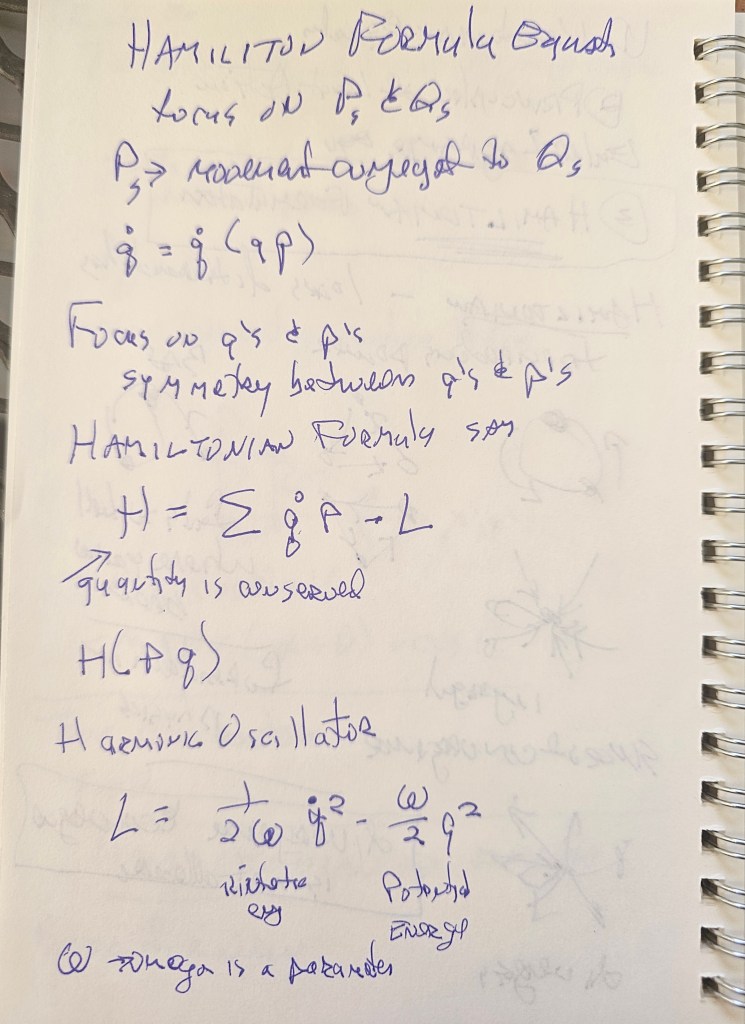 HAMILITON Formula Equat
focus on Ps & Qs
Ps → moment conjegat to Qs
q̇ = q̇ (q p)
Focus on q's & p's
symmetry between q's & p's
HAMILTONIAN Formula say
H = Σ q̇ P - L
quantity is conserved
H(P q)
Harmonic Oscillator
L = 1/2ω q̇² - ω/2 q²
Kinetic Potential
egy Energy
ω → omega is a parameter